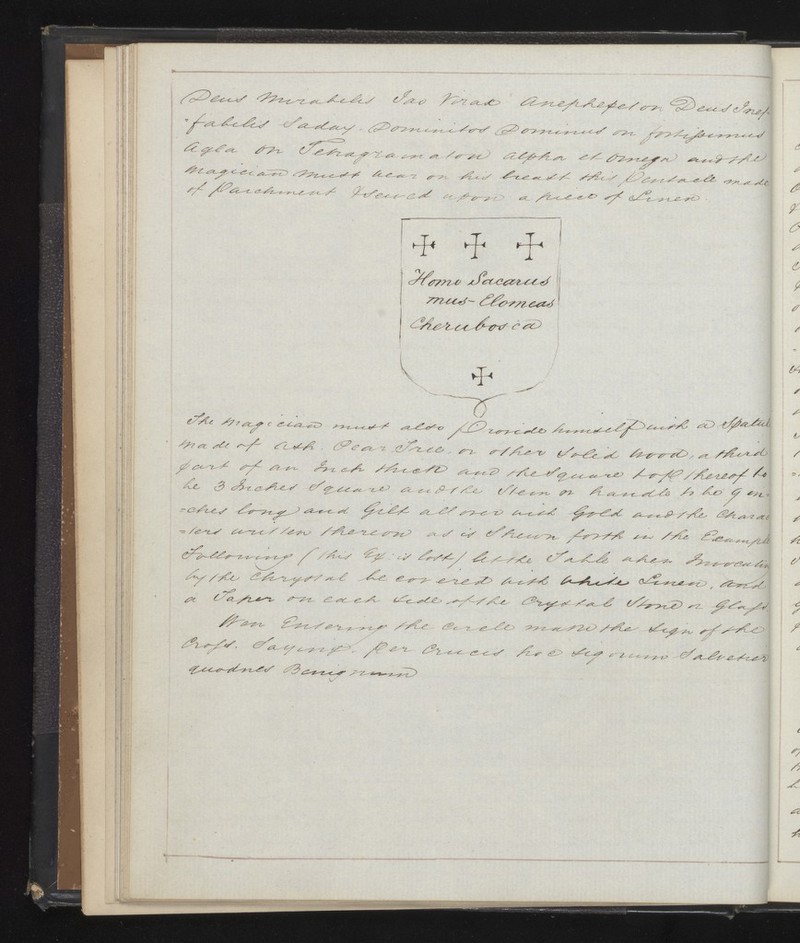 Deus Mirabilis Jao Verax Anephexeton Deus Inef-
-fabilis Saday Dominitos Dominus on fortissimus
Agla On Tetragramaton Alpha et Omega and the
Magician must bear on his breast this Pentacle made
of Parchment & sewed upon a piece of Linen
Homo Sacarus
mus-Elomeas
Cherubosca
The Magician must also Provide himself with a Spatul
Made of Ash. Pear Tree. or other Solid wood, a third
part of an Inch thick and the Square top thereof to
be 3 Inches Square and the Stem or handle to be 9 in
=ches long and Gilt all over with Gold and the Charac
=ters written thereon as is Shewn forth in the Example
Following (this Ex: is lost) let the Table when Invocating
by the Chrystal be covered with White Linen. and
a Taper on each side of the Crystal Stone or Glass
When Entering the circle make the Sign of the
Cross. Saying. Per Crucis hoc Signum Salvetur
quodnes Benignum